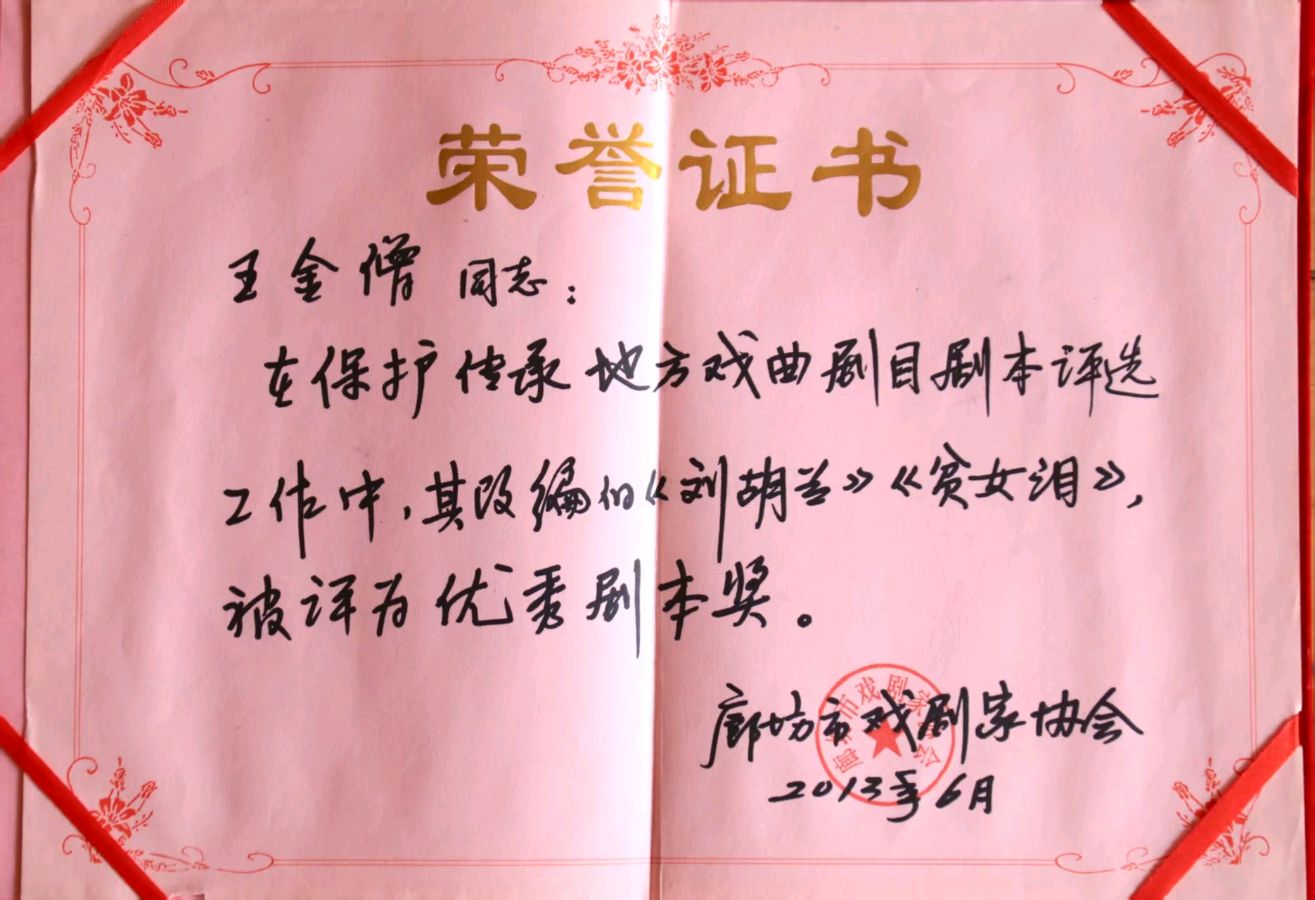 荣誉证书
王金僧 同志：
在保护传承地方戏曲剧目剧本评选
工作中，其改编的《刘胡兰》《贫女泪》，
被评为优秀剧本奖。
廊坊市戏剧家协会
2013年6月
廊坊市戏剧家协会